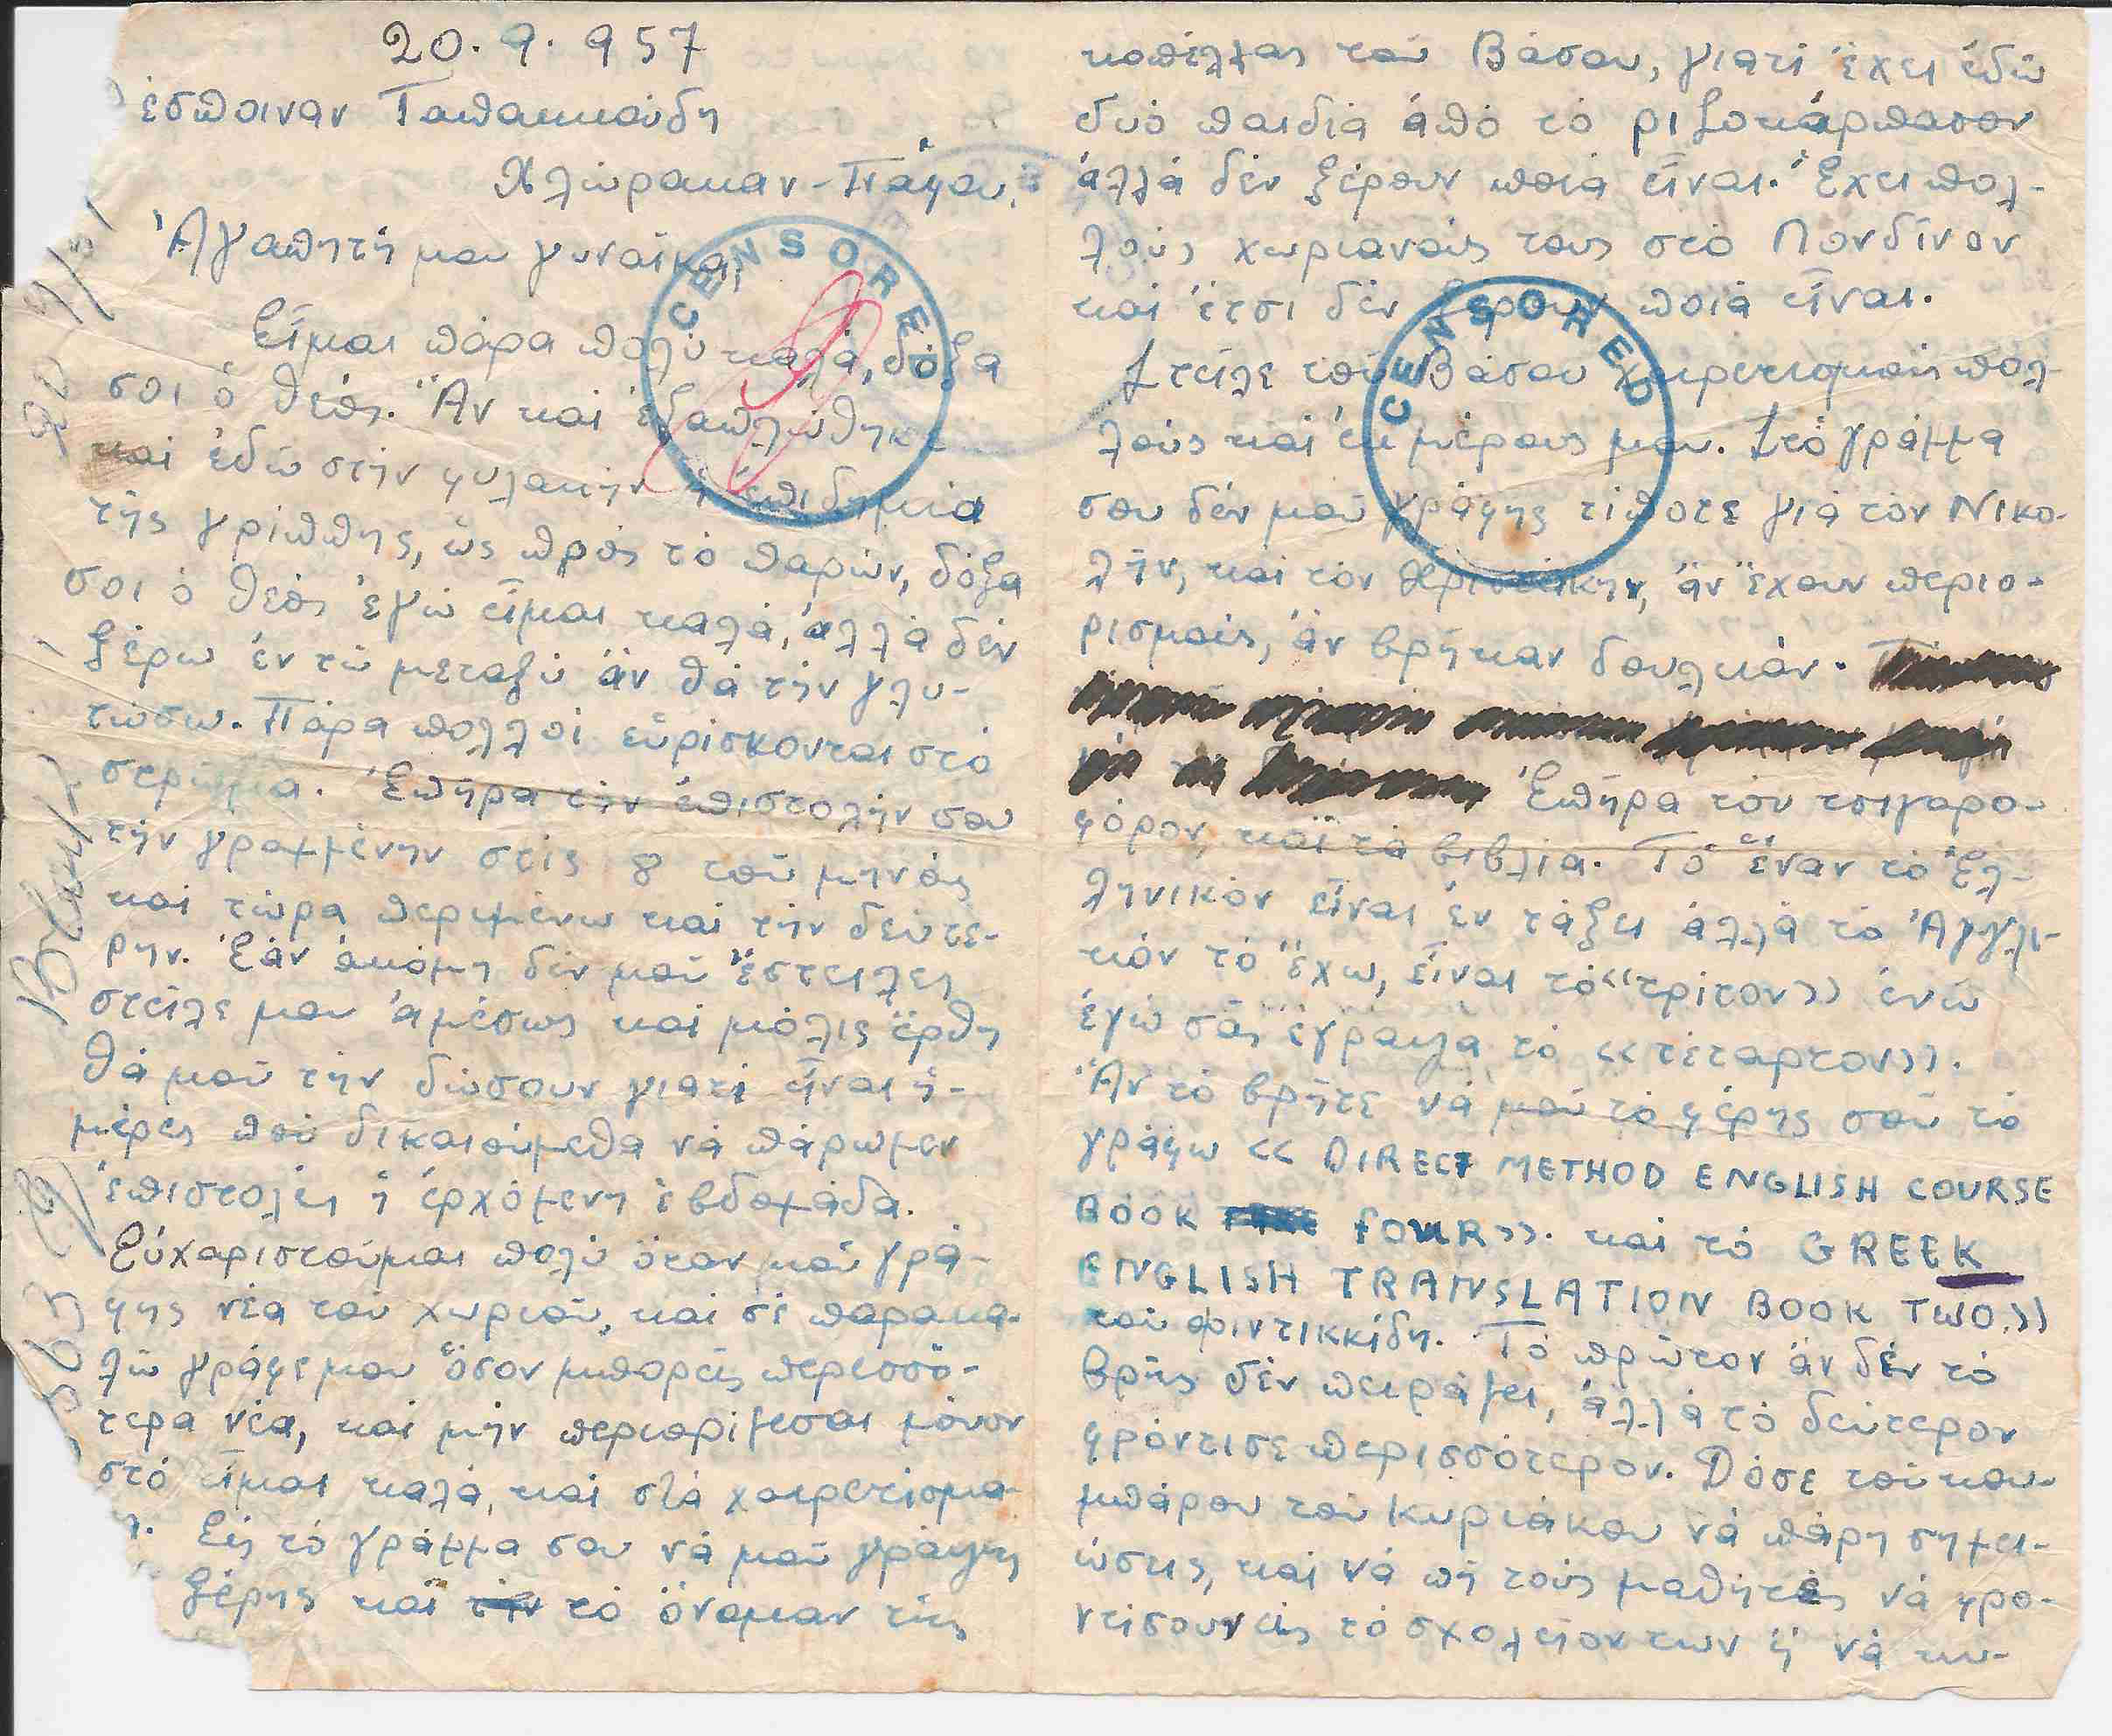 20. 9. 957
έσποιναν Ταπακκούδη
Χλώρακαν - Πάφου.
Ἀγαπητή μου γυναῖκα,
Εἶμαι πάρα πολύ καλά, δόξα
σοι ὁ θεός. Ἄν καί ἐξαπλώθηκε
καί ἐδῶ στήν φυλακήν ἡ ἐπιδημία
τῆς γρίππης, ὡς πρός τό παρών, δόξα
σοι ὁ θεός ἐγώ εἶμαι καλά, ἀλλά δέν
ξέρω ἐν τῶ μεταξύ ἄν θά τήν γλυ-
τώσω. Πάρα πολλοί εὑρίσκονται στό
στρῶμα. Ἐπῆρα τήν ἐπιστολήν σου
τήν γραμμένην στίς 8 τοῦ μηνός
καί τώρα περιμένω καί τήν δεύτε-
ρην. Ἐάν ἀκόμη δέν μοῦ ἔστειλες
στεῖλε μου ἀμέσως καί μόλις ἔρθη
θά μοῦ τήν δώσουν γιατί εἶναι ἡ-
μέρες πού δικαιούμεθα νά πάρωμεν
ἐπιστολές ἡ ἐρχόμενη ἑβδομάδα.
Εὐχαριστοῦμαι πολύ ὅταν μοῦ γρά-
φης νέα τοῦ χωριοῦ, καί σέ παρακα-
λῶ γράφε μου ὅσον μπορεῖς περεσσό-
τερα νέα, καί μήν περιορίζεσαι μόνον
στό εἶμαι καλά, καί στά χαιρετίσμα-
Εἰς τό γράμμα σου νά μοῦ γράψης
ξέρης καί τήν τό ὄνομαν τῆς
κοπέλλας τοῦ Βάσου, γιατί ἔχει ἐδῶ
δυό παιδιά ἀπό τό ριζοκάρπασον
ἀλλά δέν ξέρουν ποιά εἶναι. Ἔχει πολ-
λούς χωριανούς τους στό Λονδῖνον
καί ἔτσι δέν ξέρουν ποιά εἶναι.
Στεῖλε τοῦ Βάσου χαιρετισμούς πολ-
λούς καί ἐκ μέρους μου. Στό γράμμα
σου δέν μοῦ γράφης τίποτε γιά τόν Νικο-
λήν, καί τόν Χριστάκην, ἄν ἔχουν περιο-
ρισμούς, ἄν βρῆκαν δουλειάν.
Ἐπῆρα τόν τσιγαρο-
φόρον, καί τά βιβλία. Τό ἕναν τό Ἑλ-
ληνικόν εἶναι ἐν τάξει ἀλλά τό Ἀγγλι-
κόν τό ἔχω, εἶναι τό «τρίτον» ἐνῶ
ἐγώ σᾶς ἔγραψα τό «τέταρτον».
Ἄν τό βρῆτε νά μοῦ τό φέρης σοῦ τό
γράφω « DIRECT METHOD ENGLISH COURSE
BOOK FOUR». καί τό GREEK
ENGLISH TRANSLATION BOOK TWO.»
τοῦ φιντικκίδη. Τό πρῶτον ἄν δέν τό
βρῆς δέν πειράζει, ἀλλά τό δεύτερον
φρόντισε περισσότερον. Δόσε τοῦ κου-
μπάρου τοῦ Κυριάκου νά πάρη σημει-
ώσεις, καί νά πῆ τούς μαθητές νά φρο-
ντίσουν εἰς τό σχολεῖον των ἤ νά